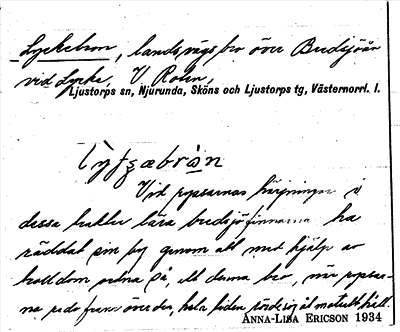 Lyckebron, landsvägsbro över Bredsjöån
vid Lycke, V. Rolen,
Ljustorps sn, Njurunda, Sköns och Ljustorps tg, Västernorrl. l.
Vid ryssarnas härjningar i
dessa trakter lära bredsjöfinnarna ha
räddat sin by genom att med hjälp av
trolldom ordna så, att denna bro, när ryssar-
na redo fram över den, hela tiden rörde sig åt motsatt håll.
ANNA-LISA ERICSON 1934